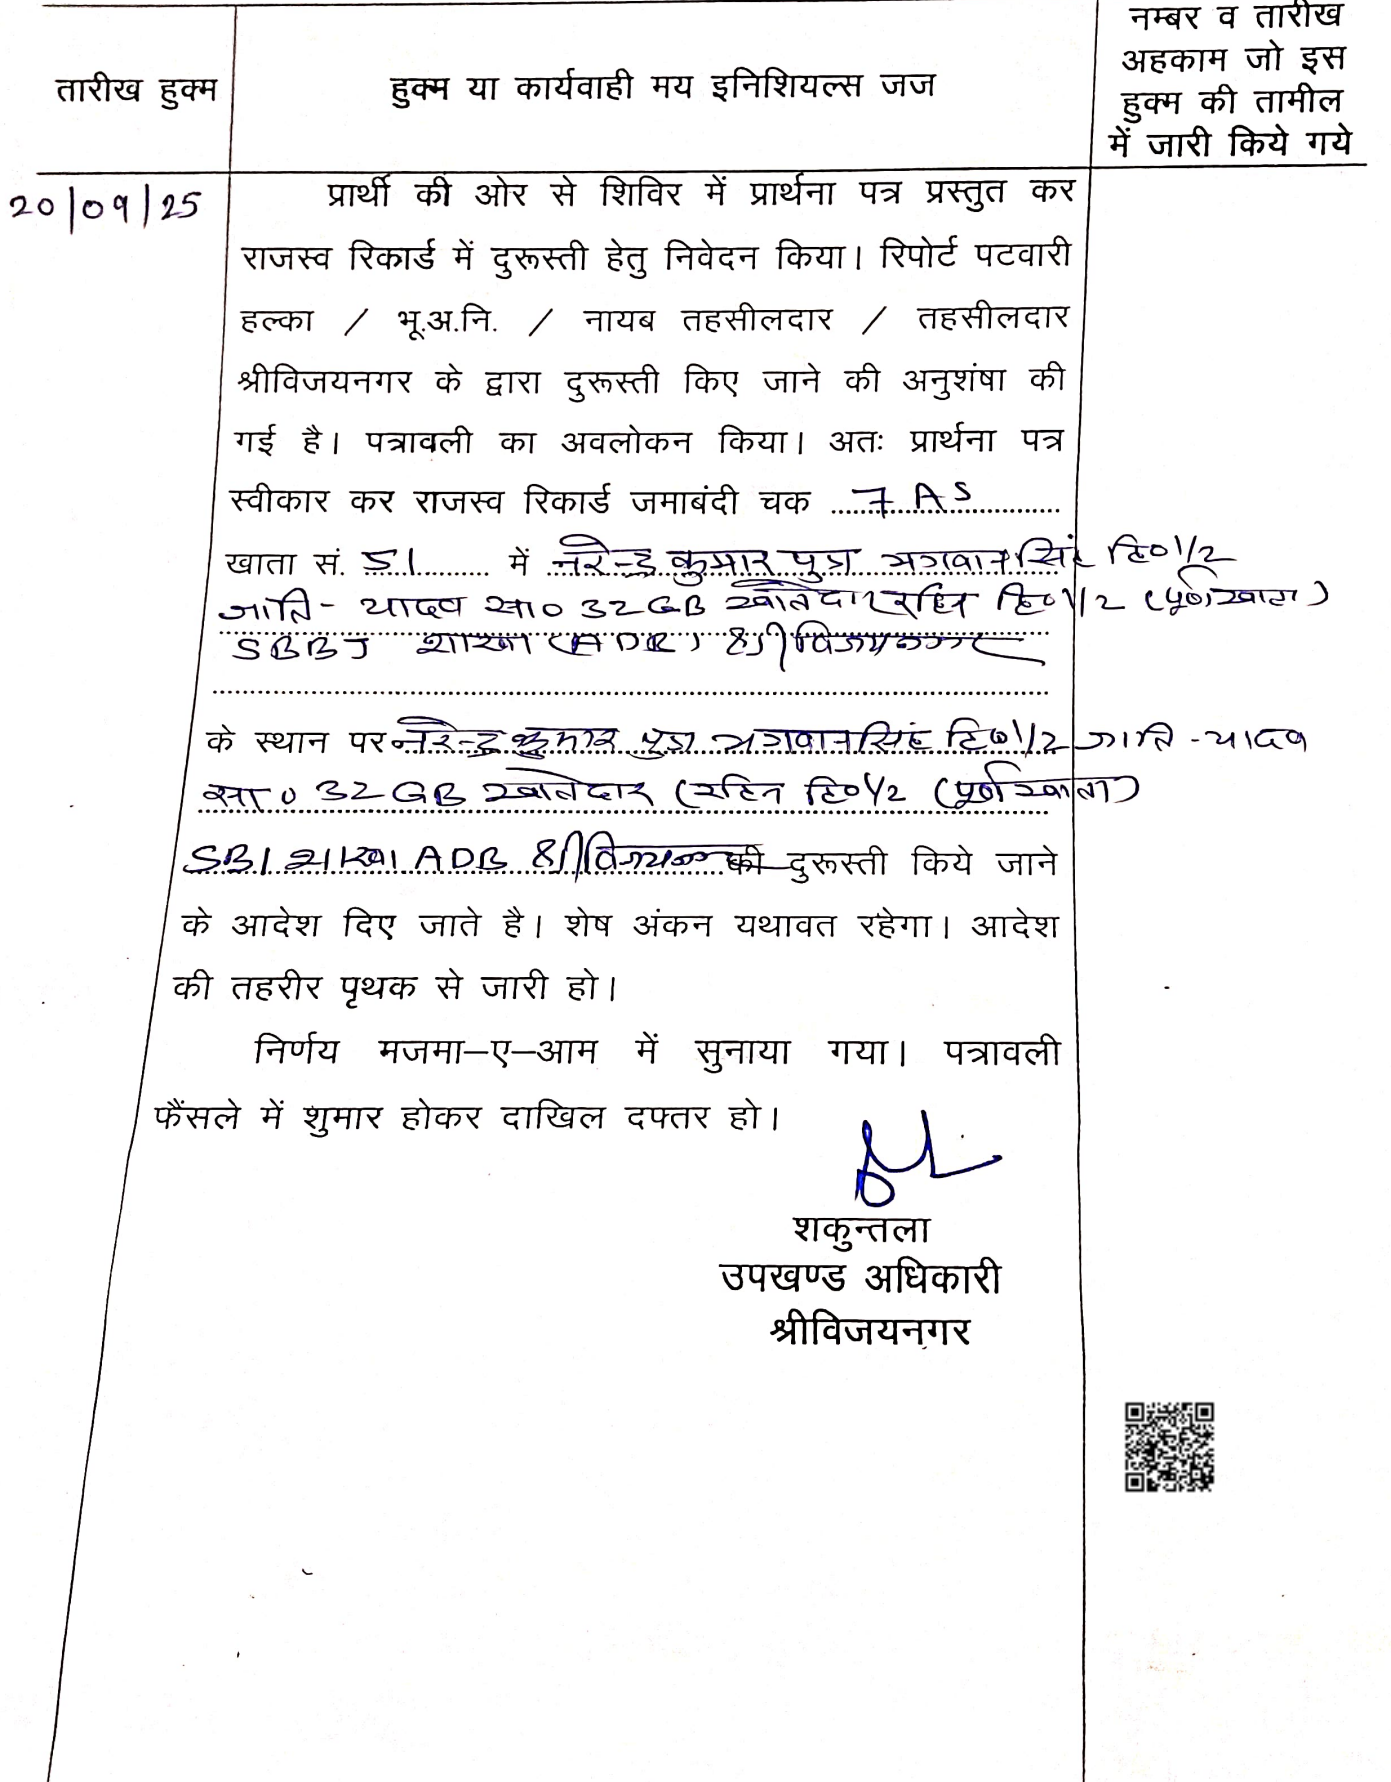 तारीख हुक्म
हुक्म या कार्यवाही मय इनिशियल्स जज
नम्बर व तारीख
अहकाम जो इस
हुक्म की तामील
में जारी किये गये
20/09/25
प्रार्थी की ओर से शिविर में प्रार्थना पत्र प्रस्तुत कर
राजस्व रिकार्ड में दुरूस्ती हेतु निवेदन किया। रिपोर्ट पटवारी
हल्का / भू.अ.नि. / नायब तहसीलदार / तहसीलदार
श्रीविजयनगर के द्वारा दुरूस्ती किए जाने की अनुशंषा की
गई है। पत्रावली का अवलोकन किया। अतः प्रार्थना पत्र
स्वीकार कर राजस्व रिकार्ड जमाबंदी चक 7 AS
खाता सं. 51 में नरेन्द्र कुमार पुत्र भगवानसिंह हि० 1/2
जाति - यादव सा० 32 GB खातेदार रहिन हि० 1/2 (पूर्ण खाता)
SBBJ शाखा (ADB) श्रीविजयनगर
के स्थान पर नरेन्द्र कुमार पुत्र भगवानसिंह हि० 1/2 जाति - यादव
सा० 32 GB खातेदार (रहिन हि० 1/2 (पूर्ण खाता)
SBI शाखा ADB श्रीविजयनगर की दुरूस्ती किये जाने
के आदेश दिए जाते है। शेष अंकन यथावत रहेगा। आदेश
की तहरीर पृथक से जारी हो।
निर्णय मजमा–ए–आम में सुनाया गया। पत्रावली
फैंसले में शुमार होकर दाखिल दफ्तर हो।
शकुन्तला
उपखण्ड अधिकारी
श्रीविजयनगर